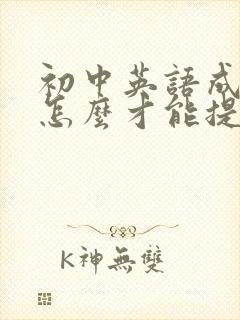 初中英語成
怎麼才能提
K神無雙